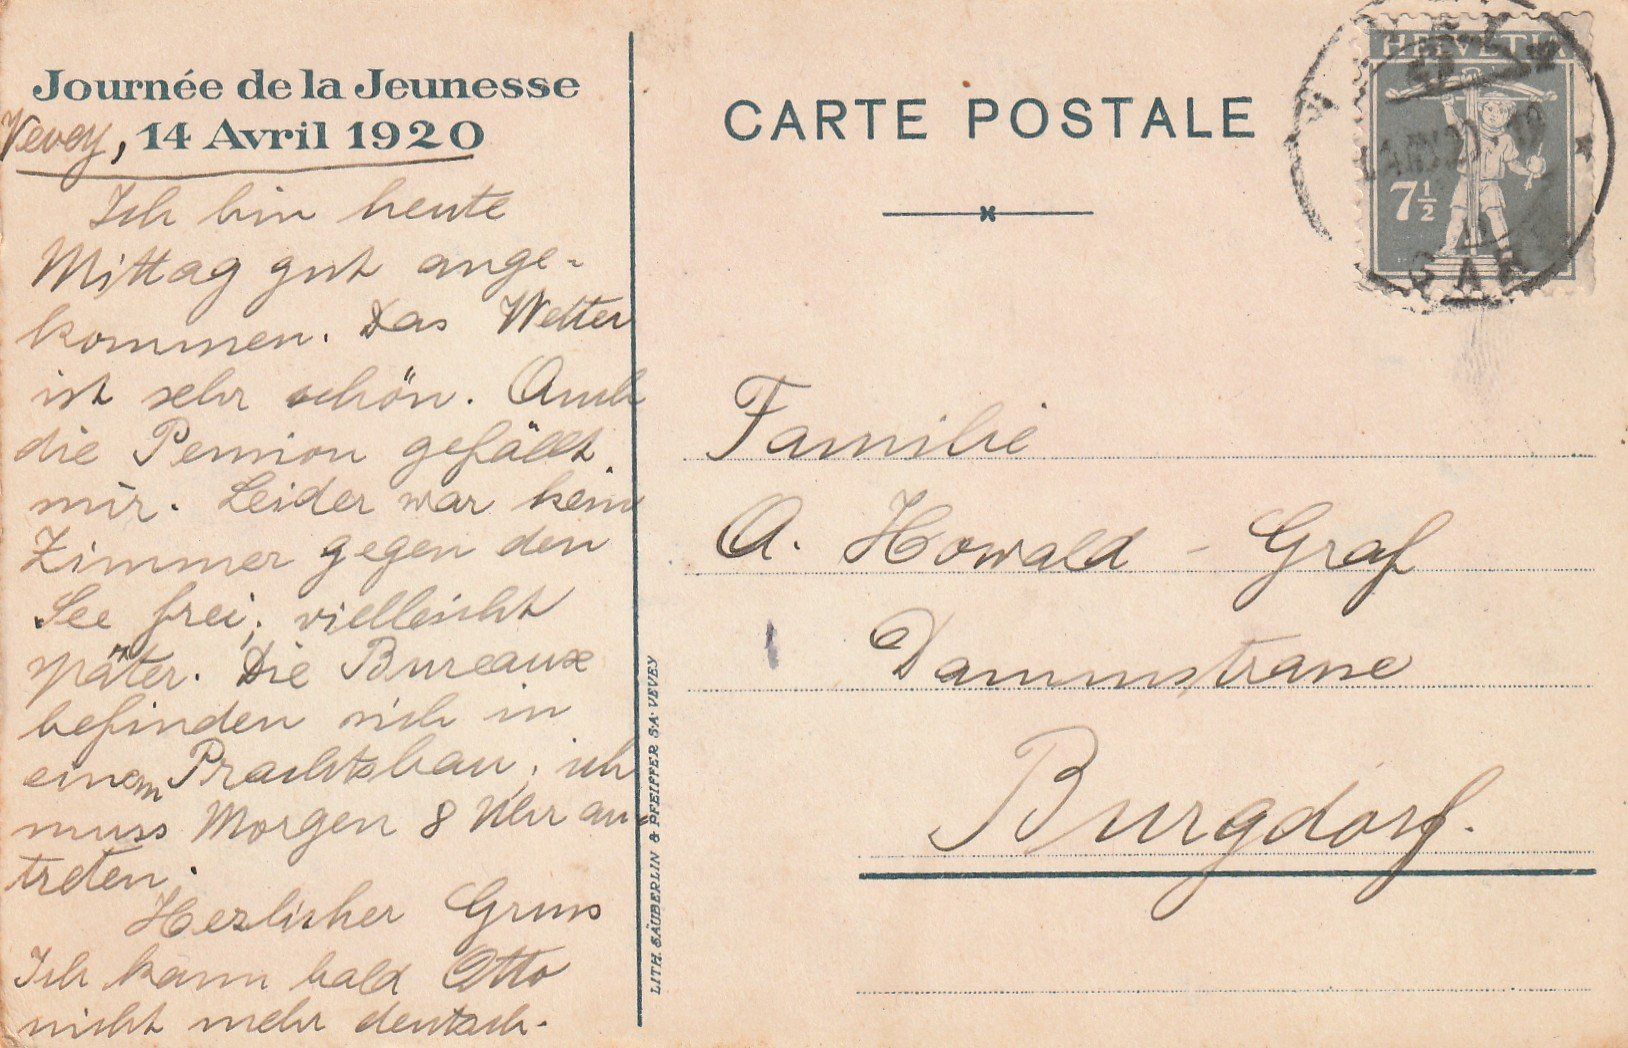 Journée de la Jeunesse
Vevey, 14 Avril 1920
Ich bin heute
Mittag gut ange-
kommen. Das Wetter
ist sehr schön. Auch
die Pension gefällt
mir. Leider war kein
Zimmer gegen den
See frei, vielleicht
später. Die Bureaux
befinden sich in
einem Prachtsbau, ich
muss Morgen 8 Uhr an
treten.
Herzlicher Gruss
Ich kann bald Otto
nicht mehr deutsch.
LITH. SÄUBERLIN & PFEIFFER S.A. VEVEY
CARTE POSTALE
HELVETIA
7½
Familie
A. Howald - Graf
Dammstrasse
Burgdorf.